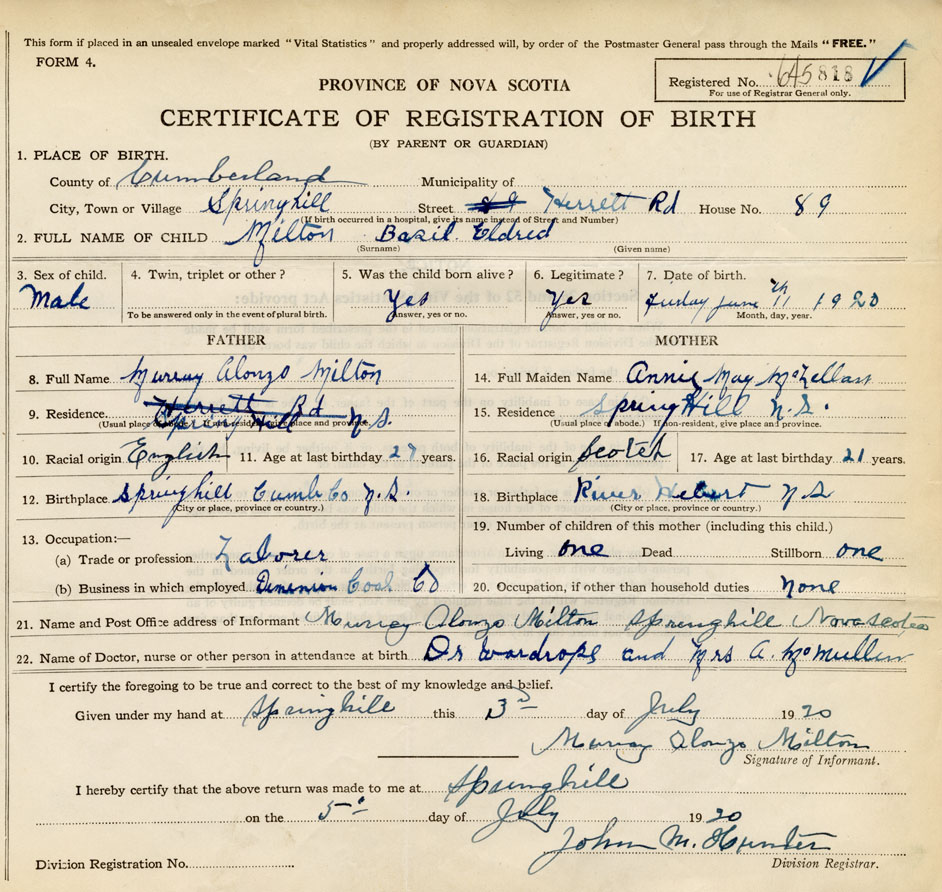 This form if placed in an unsealed envelope marked "Vital Statistics" and properly addressed will, by order of the Postmaster General pass through the Mails "FREE."
FORM 4.
PROVINCE OF NOVA SCOTIA
Registered No. 645818
For use of Registrar General only.
CERTIFICATE OF REGISTRATION OF BIRTH
(BY PARENT OR GUARDIAN)
1. PLACE OF BIRTH.
County of Cumberland Municipality of
City, Town or Village Springhill Street Herrett Rd House No. 89
(If birth occurred in a hospital, give its name instead of Street and Number)
2. FULL NAME OF CHILD Milton Bazil Eldred
(Surname) (Given name)
3. Sex of child. 4. Twin, triplet or other? 5. Was the child born alive? 6. Legitimate? 7. Date of birth.
Male Yes Yes Friday June 11th 1920
To be answered only in the event of plural birth. Answer, yes or no. Answer, yes or no. Month, day, year.
FATHER MOTHER
8. Full Name Murray Alonzo Milton
14. Full Maiden Name Annie May McLellan
9. Residence Herrett Rd Springhill N.S.
(Usual place of abode.) If non-resident, give place and province.
15. Residence Spring Hill N.S.
(Usual place of abode.) If non-resident, give place and province.
10. Racial origin English 11. Age at last birthday 27 years.
16. Racial origin Scotch 17. Age at last birthday 21 years.
12. Birthplace Springhill Cumb Co N.S.
(City or place, province or country.)
18. Birthplace River Hebert N S
(City or place, province or country.)
13. Occupation:—
(a) Trade or profession Laborer
(b) Business in which employed Dominion Coal CO
19. Number of children of this mother (including this child.)
Living one Dead Stillborn one
20. Occupation, if other than household duties None
21. Name and Post Office address of Informant Murray Alonzo Milton Springhill Nova scotia
22. Name of Doctor, nurse or other person in attendance at birth Dr Wardrope and Mrs A. McMullin
I certify the foregoing to be true and correct to the best of my knowledge and belief.
Given under my hand at Springhill this 3rd day of July 1920
Murray Alonzo Milton
Signature of Informant.
I hereby certify that the above return was made to me at Springhill
on the 5th day of July 1920
John M. Hunter
Division Registrar.
Division Registration No.